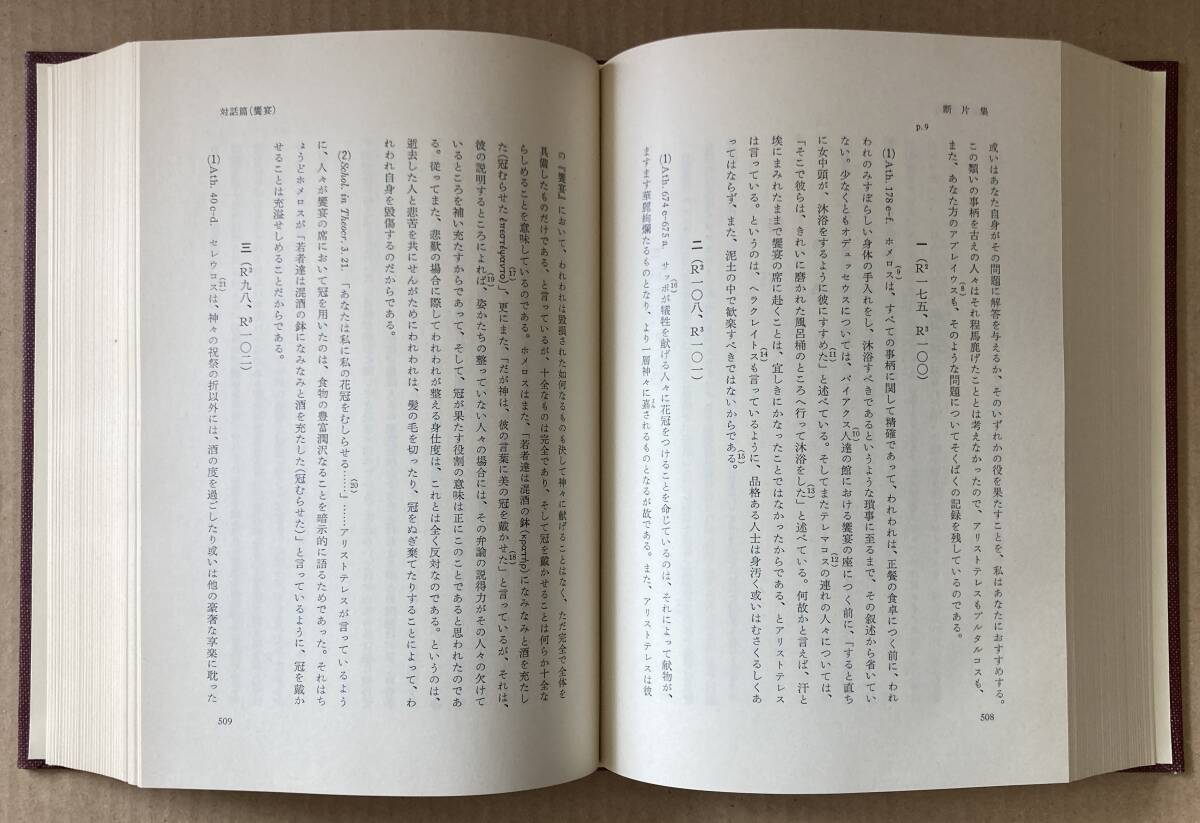 断片集
p.9
或いはあなた自身がその問題に解答を与えるか、そのいずれかの役を果たすことを、私はあなたにおすすめする。
この類いの事柄を古えの人々はそれ程馬鹿げたこととは考えなかったので、アリストテレスもプルタルコスも、
また、あなた方のアプレイウスも、そのような問題についてそくばくの記録を残しているのである。(8)
一 (R²一七五、R³一〇〇)
(1)Ath. 178 e–f. ホメロスは、すべての事柄に関して精確であって、われわれは、正餐の食卓につく前に、われ(9)
われのみすぼらしい身体の手入れをし、沐浴すべきであるというような瑣事に至るまで、その叙述から省いてい
ない。少なくともオデュッセウスについては、パイアクス人達の館における饗宴の座につく前に、「すると直ち(10)
に女中頭が、沐浴をするように彼にすすめた」と述べている。そしてまたテレマコスの連れの人々については、(11)(12)
「そこで彼らは、きれいに磨かれた風呂桶のところへ行って沐浴をした」と述べている。何故かと言えば、汗と(13)
埃にまみれたままで饗宴の席に赴くことは、宜しきにかなったことではなかったからである、とアリストテレス
は言っている。というのは、ヘラクレイトスも言っているように、品格ある人士は身汚く或いはむさくるしくあ(14)
ってはならず、また、泥土の中で歓楽すべきではないからである。(15)
二 (R²一〇八、R³一〇一)
(1)Ath. 674 e–675 a. サッポが犠牲を献げる人々に花冠をつけることを命じているのは、それによって献物が、(16)
ますます華麗絢爛たるものとなり、より一層神々に嘉されるものとなるが故である。また、アリストテレスは彼
508
対話篇(饗宴)
の『饗宴』において、われわれは毀損された如何なるものも決して神々に献げることはなく、ただ完全で全体を
具備したものだけである、と言っているが、十全なものは完全であり、そして冠を戴かせることは何らか十全な
らしめることを意味しているのである。ホメロスはまた、「若者達は混酒の鉢(κρατήρ)になみなみと酒を充たし
た(冠むらせた ἐπεστέψαντο)」、更にまた、「だが神は、彼の言葉に美の冠を戴かせた」と言っているが、それは、(17)(18)
彼の説明するところによれば、姿かたちの整っていない人々の場合には、その弁論の説得力がその人々の欠けて(19)
いるところを補い充たすからであって、そして、冠が果たす役割の意味は正にこのことであると思われたのであ
る。従ってまた、悲歎の場合に際してわれわれが整える身仕度は、これとは全く反対なのである。というのは、
逝去した人と悲苦を共にせんがためにわれわれは、髪の毛を切ったり、冠をぬぎ棄てたりすることによって、わ
れわれ自身を毀傷するのだからである。
(2)Schol. in Theocr. 3. 21. 「あなたは私に私の花冠をむしらせる……」……アリストテレスが言っているよう(20)
に、人々が饗宴の席において冠を用いたのは、食物の豊富潤沢なることを暗示的に語るためであった。それはち
ょうどホメロスが「若者達は混酒の鉢になみなみと酒を充たした(冠むらせた)」と言っているように、冠を戴か
せることは充溢せしめることだからである。
三 (R²九八、R³一〇二)
(1)Ath. 40 c–d. セレウコスは、神々の祝祭の折以外には、酒の度を過ごしたり或いは他の豪奢な享楽に耽った(21)
509